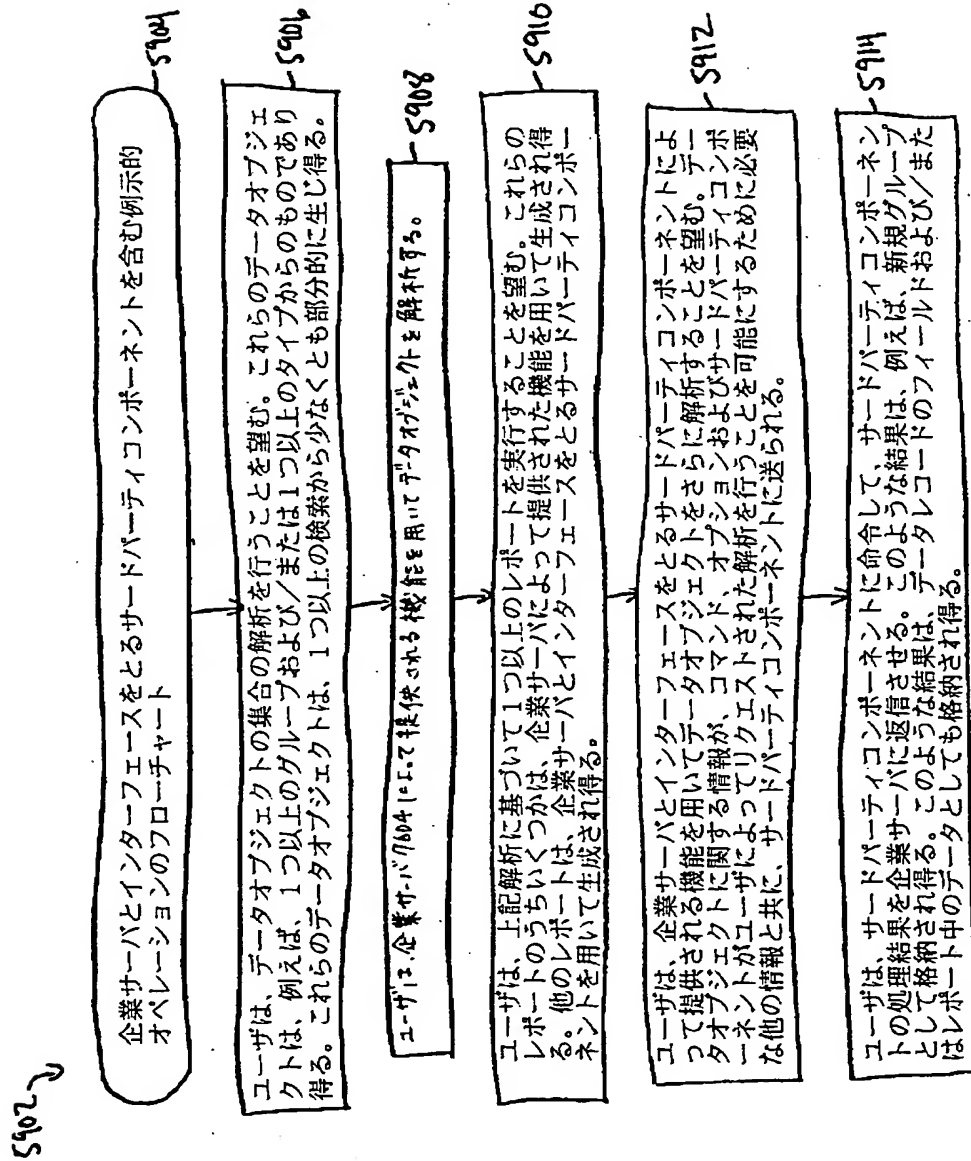 5902
企業サーバとインターフェースをとるサードパーティコンポーネントを含む例示的
オペレーションのフローチャート
5904
ユーザは、データオブジェクトの集合の解析を行うことを望む。これらのデータオブジェ
クトは、例えば、1つ以上のグループおよび/または1つ以上のタイプからのものであり
得る。これらのデータオブジェクトは、1つ以上の検索から少なくとも部分的に生じ得る。
5906
ユーザは、企業サーバ7604によって提供される機能を用いてデータオブジェクトを解析する。
5908
ユーザは、上記解析に基づいて1つ以上のレポートを実行することを望む。これらの
レポートのうちいくつかは、企業サーバによって提供された機能を用いて生成され得
る。他のレポートは、企業サーバとインターフェースをとるサードパーティコンポー
ネントを用いて生成され得る。
5910
ユーザは、企業サーバとインターフェースをとるサードパーティコンポーネントによ
って提供される機能を用いてデータオブジェクトをさらに解析することを望む。デー
タオブジェクトに関する情報が、コマンド、オプションおよびサードパーティコンポ
ーネントがユーザによってリクエストされた解析を行うことを可能にするために必要
な他の情報と共に、サードパーティコンポーネントに送られる。
5912
ユーザは、サードパーティコンポーネントに命令して、サードパーティコンポーネン
トの処理結果を企業サーバに返信させる。このような結果は、例えば、新規グループ
として格納され得る。このような結果は、データレコードのフィールドおよび/また
はレポート中のデータとしても格納され得る。
5914